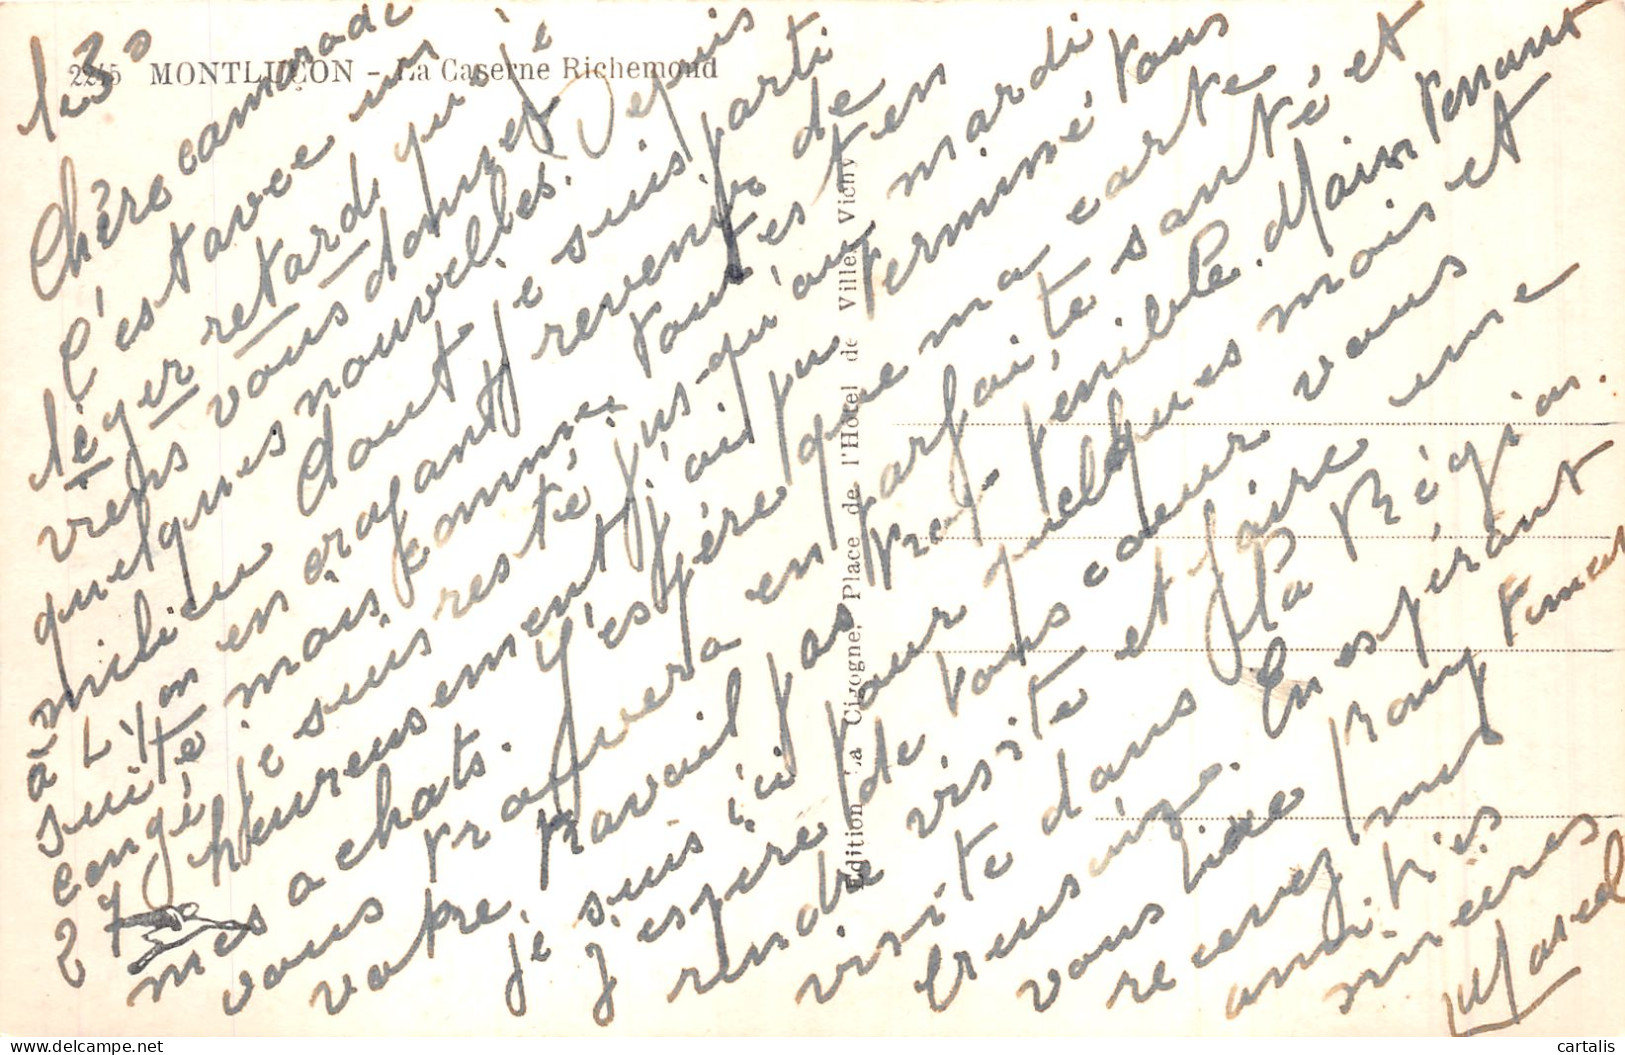 2245 MONTLUÇON - La Caserne Richemond
Edition La Cigogne, Place de l'Hôtel de Ville, Vichy
le 30
Chère camarade
C'est avec un
léger retard que je
viens vous donner
quelques nouvelles. Depuis
milieu Août je suis parti
à Lyon en croyant revenir de
suite mais comme toutes en
congé je suis resté jus-qu'au mardi
27 heureusement j'ai pu terminé tous
mes achats. J'espère que ma carte
vous trouvera en parfaite santé et
votre travail pas trop pénible. Maintenant
je suis ici pour quelques mois et
J'espère de tous coeur vous
rendre visite et faire une
visite dans la Région
Creusoise. En espérant
vous lire
recevez mes
amitiés
sincères
Marcel
cartalis
delcampe.net